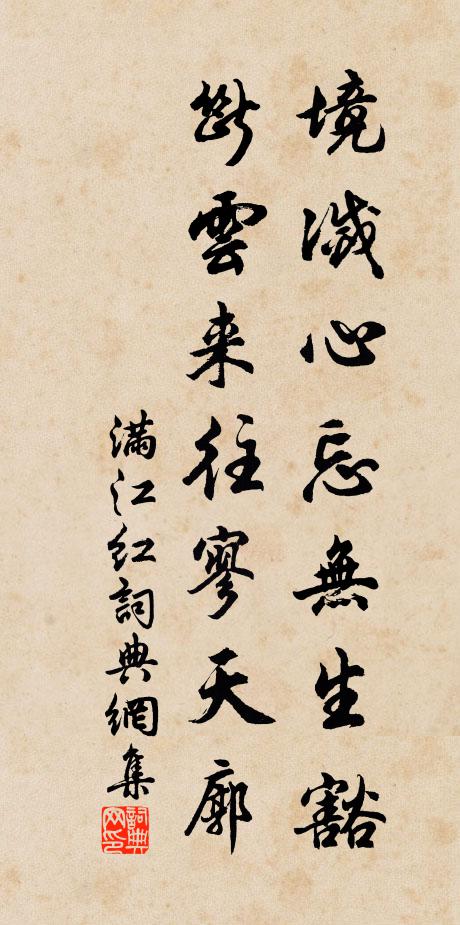 境滅心忘無生豁
斷雲来往寥天廓
滿江红詞典網集
詞典网印